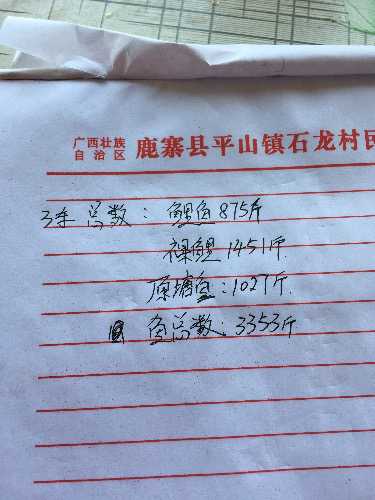 广西壮族
自治区
鹿寨县平山镇石龙村民
3年总数：鲤鱼875斤
裸鲤1451斤
原塘鱼：1027斤
鱼总数：3353斤